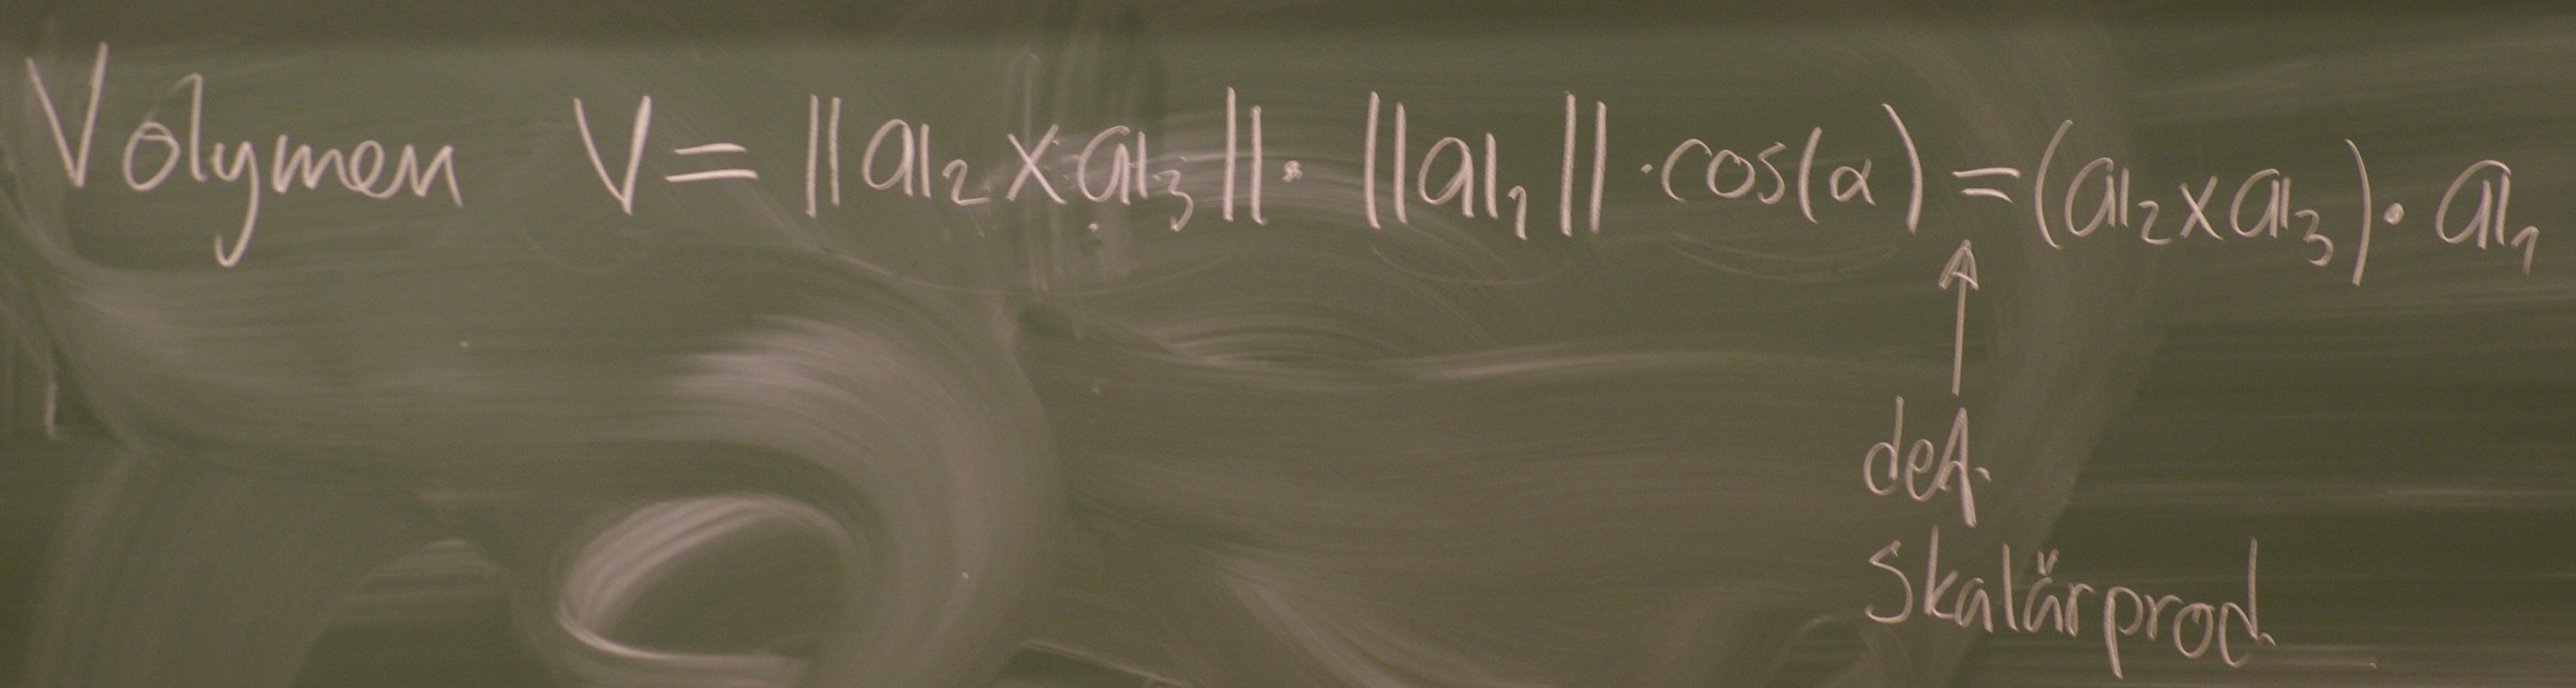 Volymen V = ||𝕒₂ × 𝕒₃|| · ||𝕒₁|| · cos(α) = (𝕒₂ × 𝕒₃) · 𝕒₁
↑
def.
skalärprod.